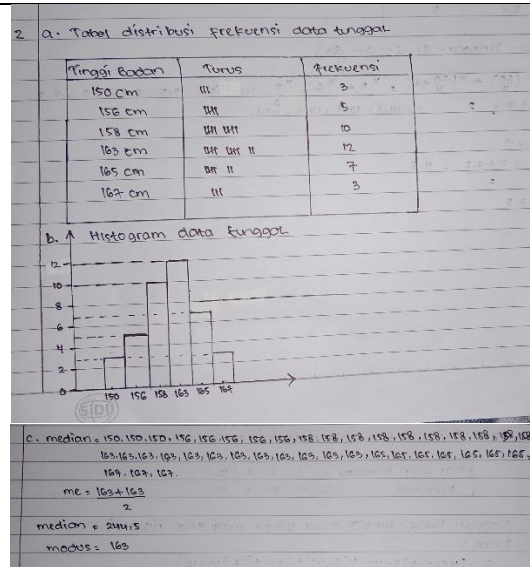 2 a. Tabel distribusi frekuensi data tunggal
Tinggi Badan Turus Frekuensi
150 cm III 3
156 cm 5
158 cm 10
163 cm 12
165 cm 7
167 cm III 3
b. Histogram data tunggal
12
10
8
6
4
2
0
150 156 158 163 165 167
SIDU
c. median = 150, 150, 150, 156, 156, 156, 156, 156, 158, 158, 158, 158, 158, 158, 158, 158, 158, 158
163, 163, 163, 163, 163, 163, 163, 163, 163, 163, 163, 163, 165, 165, 165, 165, 165, 165, 165,
167, 167, 167.
me = 163 + 163
2
median = 244,5
modus = 163